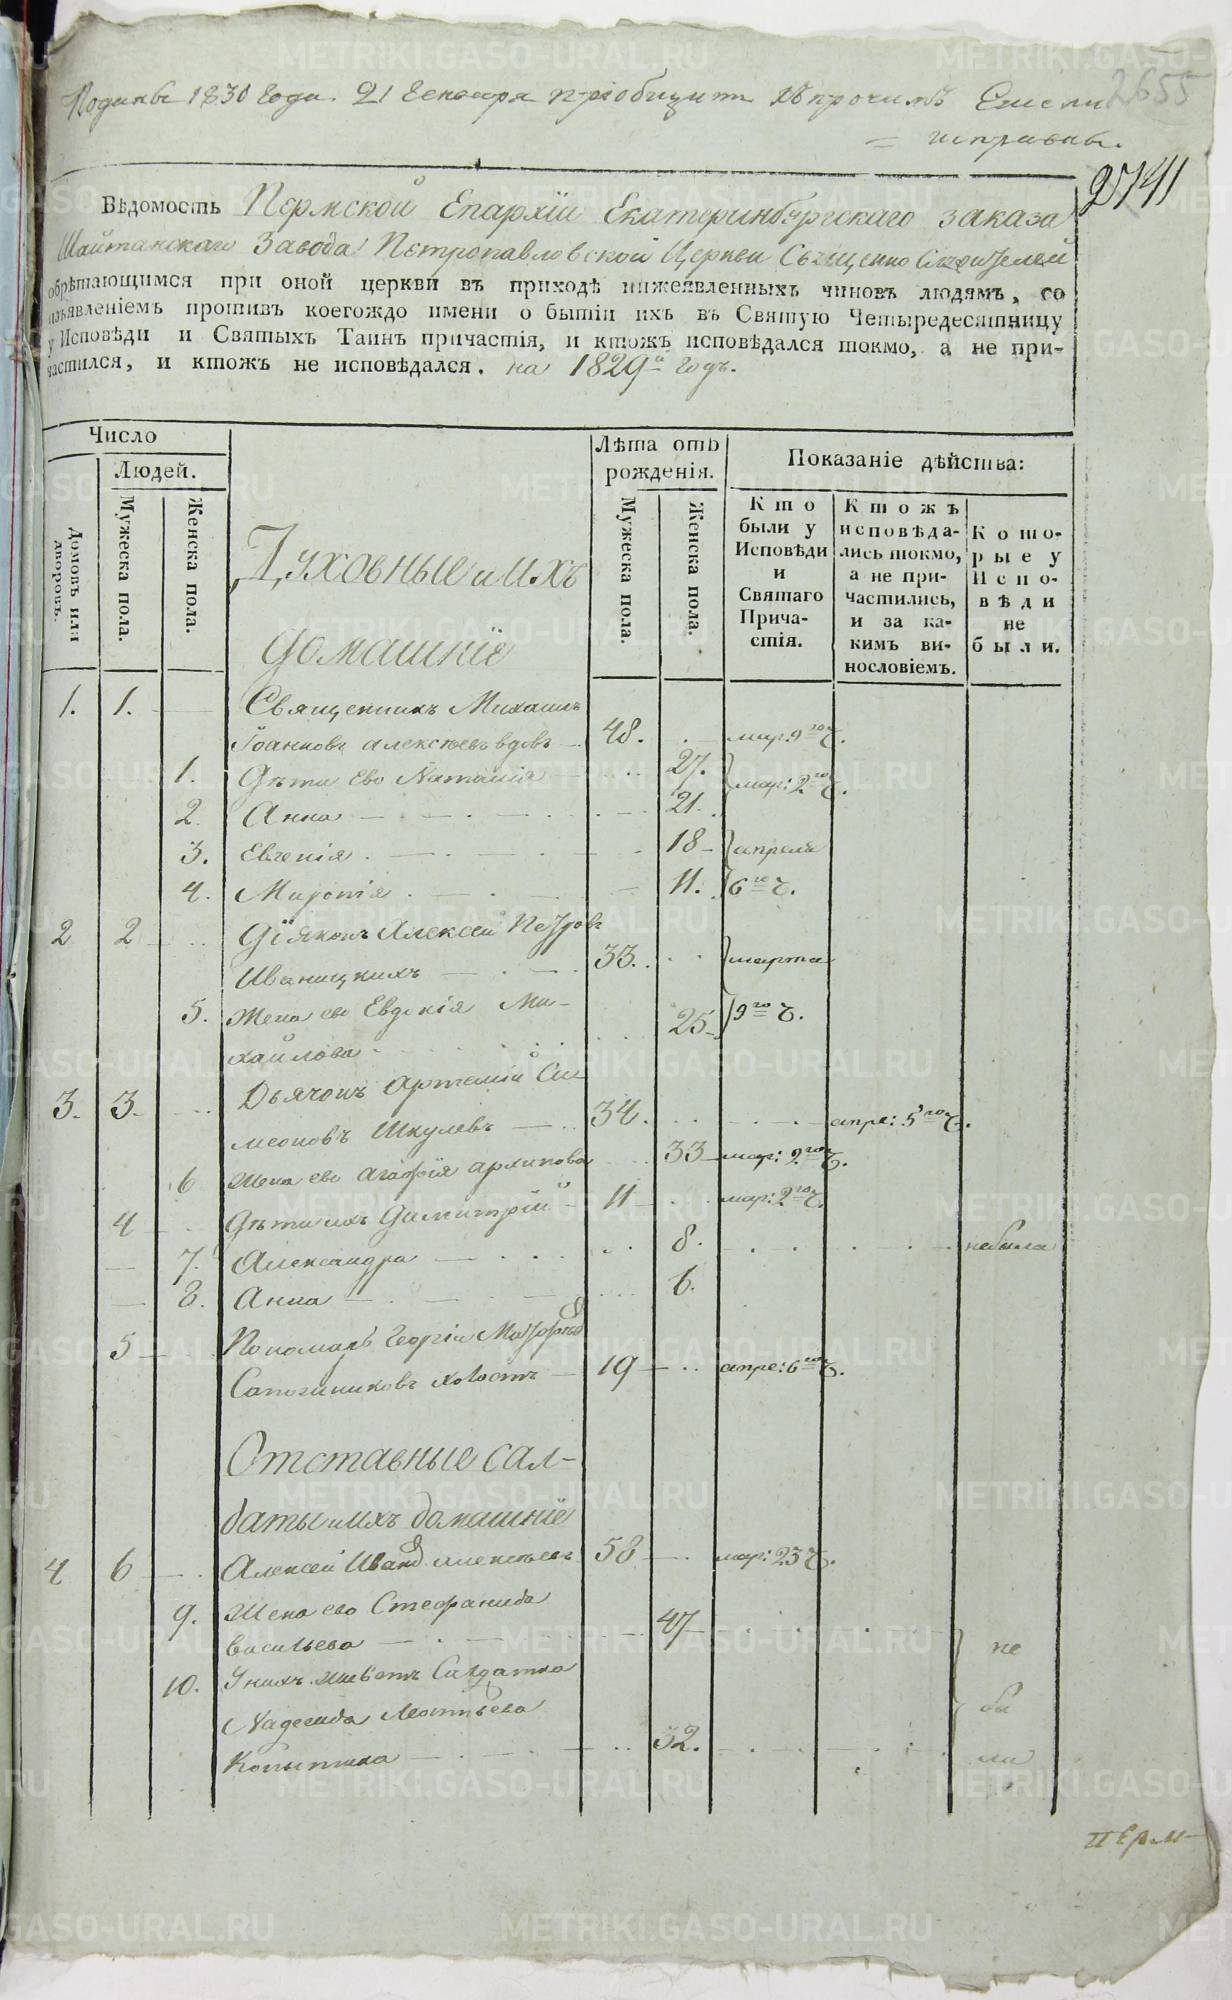 Поданы 1830 Года. 21 Генваря приобщит къ прочимъ Если
2655
= исправны.
2741
Вѣдомость Пермской Епархїи Екатеринбургскаго заказа
Шайтанскаго Завода Петропавловской Церкви Священно Служителей
обрѣтающимся при оной церкви въ приходѣ нижеявленныхъ чиновъ людямъ, со
изъявленіемъ противъ коегождо имени о бытіи ихъ въ Святую Четыредесятницу
у Исповѣди и Святыхъ Таинъ причастія, и ктожъ исповѣдался токмо, а не при-
частился, и ктожъ не исповѣдался. на 1829й Годъ.
Число
Людей.
Домовъ или дворовъ.
Мужеска пола.
Женска пола.
Лѣта отъ рожденія.
Мужеска пола.
Женска пола.
Показаніе дѣйства:
Кто были у Исповѣди и Святаго Прича-стія.
Ктожъ исповѣда-лись токмо, а не при-частились, и за ка-кимъ ви-нословіемъ.
Кото-рые у Испо-вѣди не были.
Духовные и ихъ
домашнїе
1. 1. Священникъ Михаилъ
Іоанновъ Алексѣевъ вдовъ 48. мар: 9го Ч.
1. Дѣти ево Наталія 27. мар: 2го Ч.
2. Анна 21.
3. Евгенія 18 апреля
4. Миропія 11. 6го Ч.
2 2 Діяконъ Алексей Петровъ
Иваницкихъ 33. марта
5. Жена ево Евдокія Ми- 25 9го Ч.
хайлова
3. 3. Дьячокъ Артемій Си-
меоновъ Шкулевъ 34. апре: 5го Ч.
6 Жена ево Агафія Архипова 33 мар: 2го Ч.
4 Дѣти ихъ Димитрій 11 мар: 2го Ч.
7. Александра 8. небыла
8. Анна 6.
5 Пономарь Георгіи Матфеевъ
Сапожниковъ холостъ 19 апре: 6го Ч.
Отставные сал-
даты и ихъ домашнїе
4 6 Алексей Иванов Алексѣевъ 58 мар: 23 Ч.
9. Жена ево Стефанида
Васильева 47 не
10. У нихъ живетъ Салдатка
Надежда Леонтьева бы
Копытина 32. ли
Перм-
METRIKI.GASO-URAL.RU